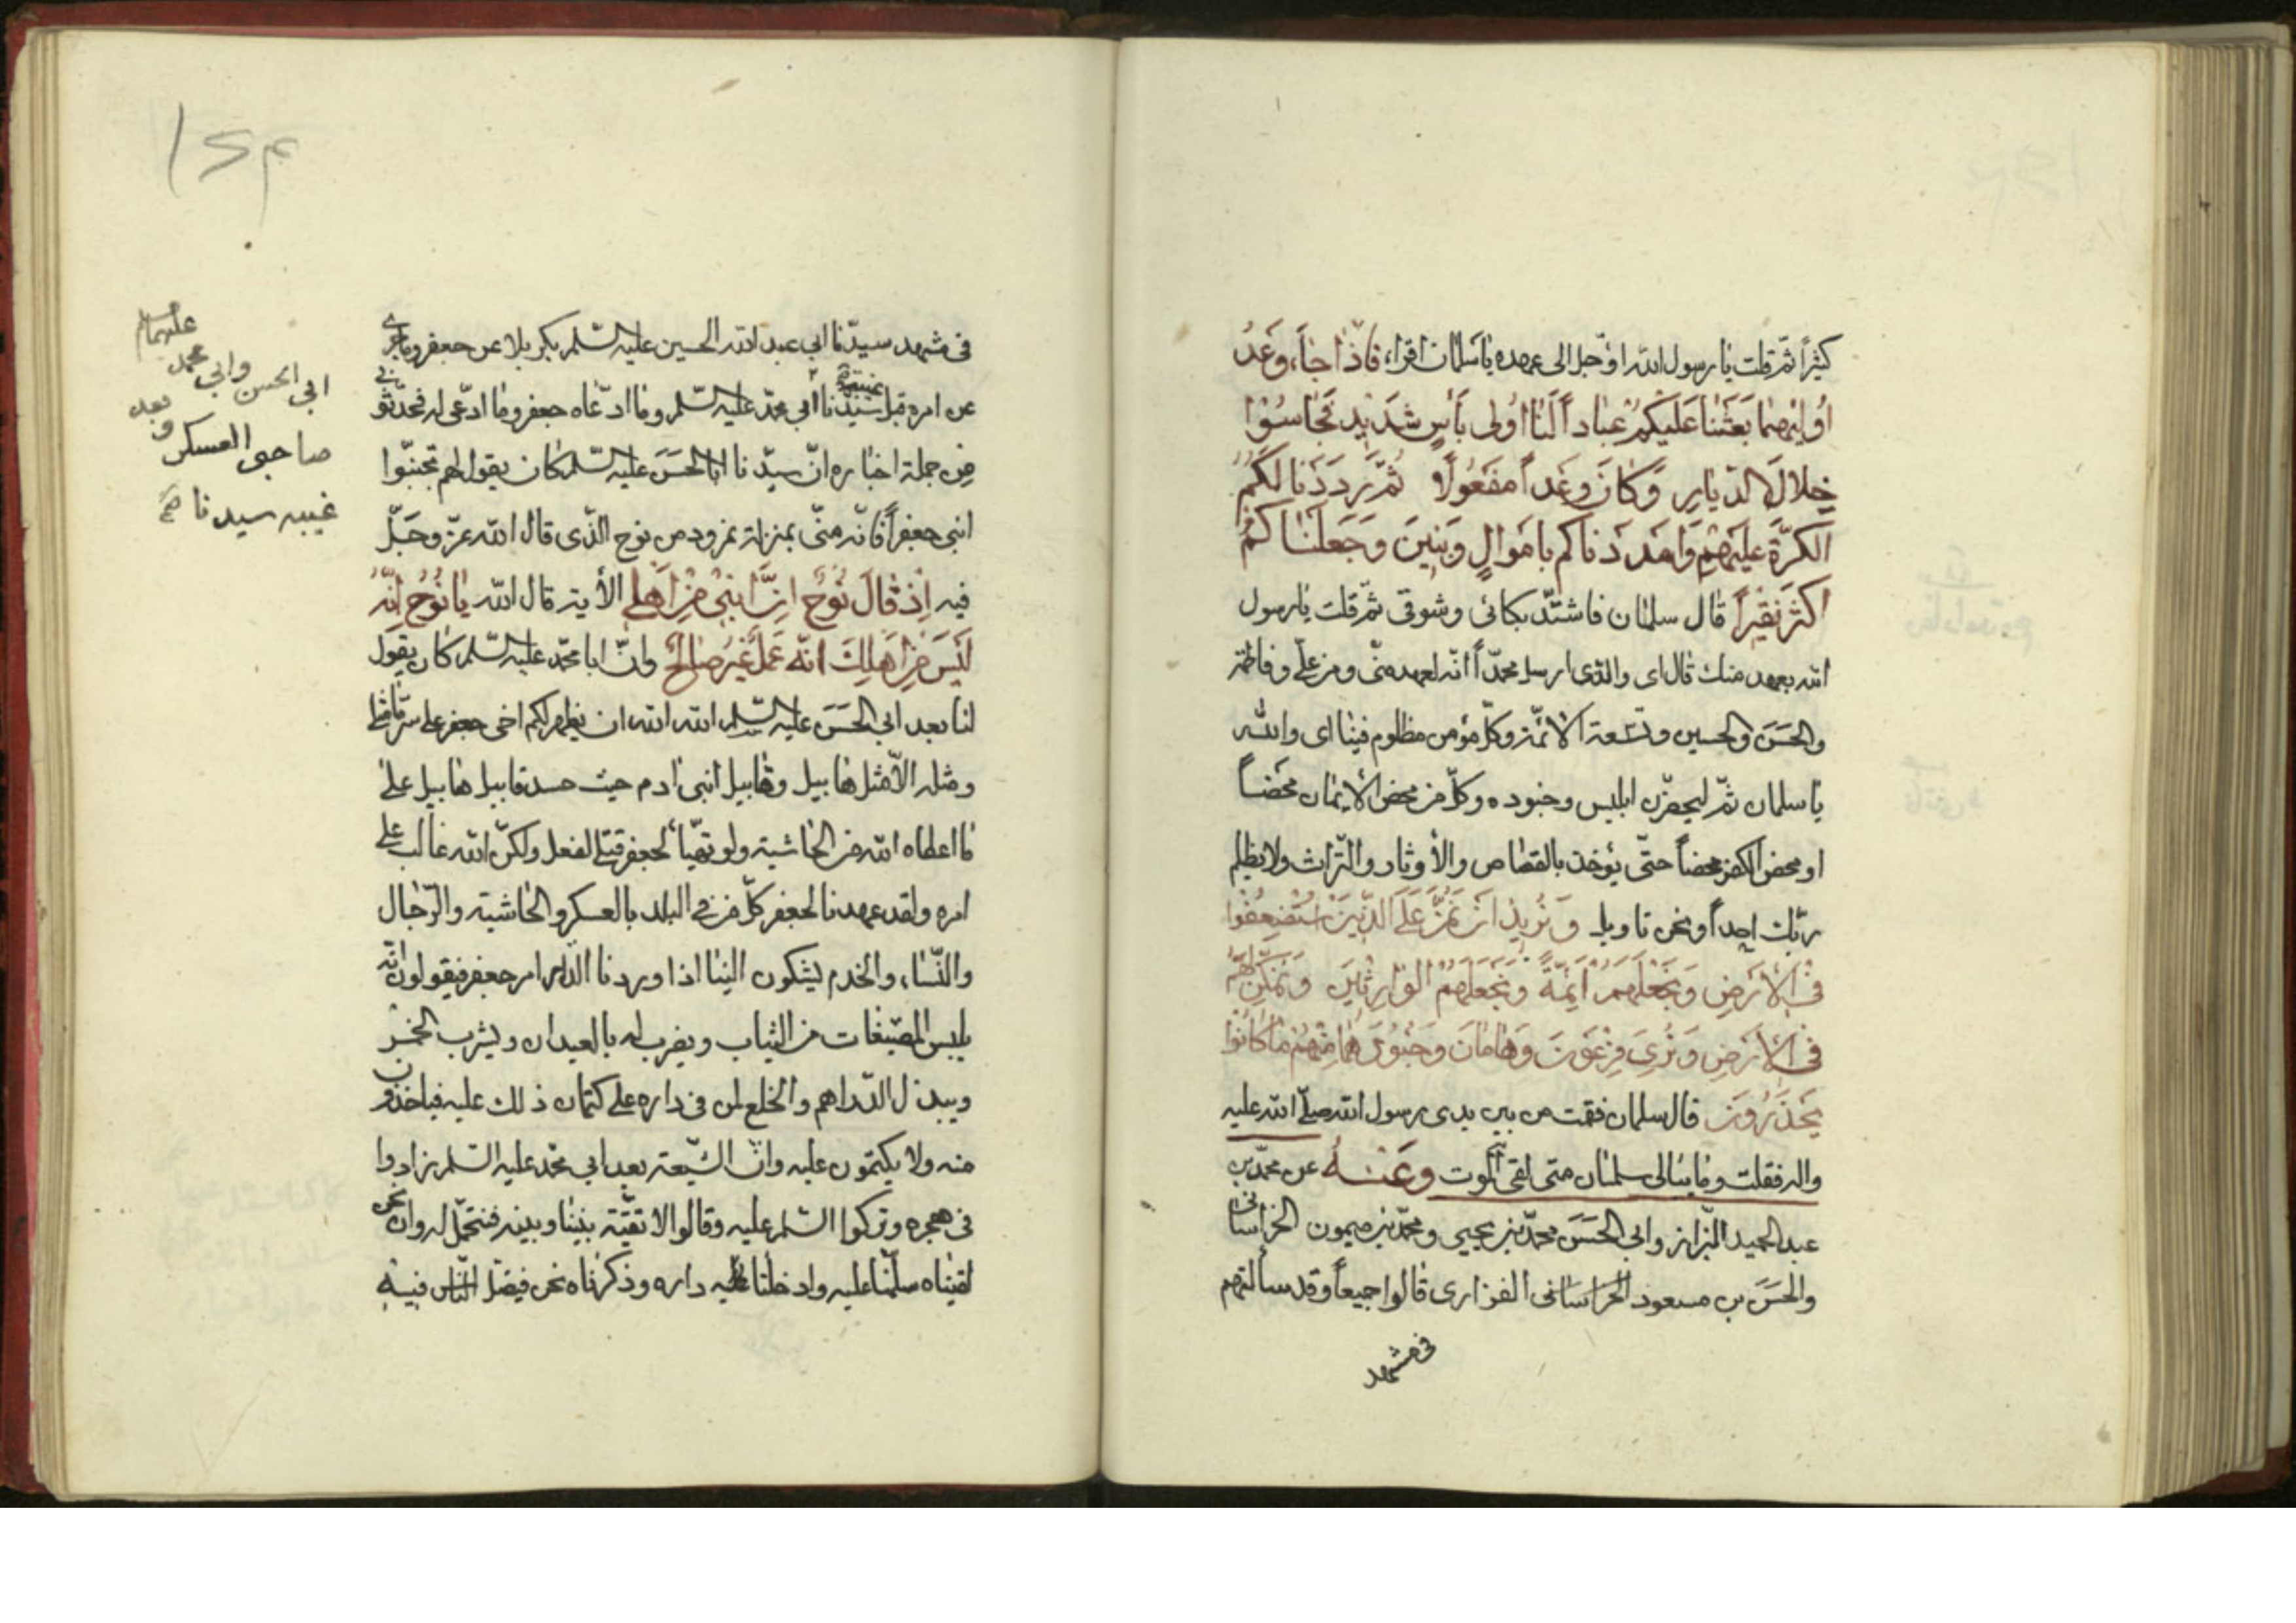 كثيراً ثمّ قلت يا رسول الله اوجل الى عهده يا سلمان اقراء فاذا جاء وعد
اُوليهما بعثنا عليكم عباداً لنا اُولى بأس شديد فجاسوا
خلال الديار وكان وعداً مفعولاً ثمّ رددنا لكم
الكرّة عليهم وامددناكم باموال وبنين وجعلناكم
اكثر نفيراً قال سلمان فاشتدّ بكائى وشوقى ثمّ قلت يا رسول
الله بعهد منك قال اى والذى ارسل محمّداً انّه لعهد منّى ومن علىّ وفاطمة
والحسن والحسين وتسعة الائمّة وكلّ مؤمن مظلوم فينا اى والله
يا سلمان ثمّ ليحضرن ابليس وجنوده وكلّ من محض الايمان محضاً
او محض الكفر محضاً حتّى يؤخذ بالقصاص والأوثار والتّراث ولا يظلم
ربّك احداً ونحن تاويل ونريد ان نمنّ على الّذين استضعفوا
فى الارض ونجعلهم ائمّة ونجعلهم الوارثين ونمكّن لهم
فى الارض ونرى فرعون وهامان وجنودهما منهم ما كانوا
يحذرون قال سلمان فقمت من بين يدى رسول الله صلّى الله عليه
واله فقلت وما يبالى سلمان متى لقى الموت وعنه عن محمّد بن
عبد الحميد البزاز وابى الحسن محمّد بن يحيى ومحمّد بن ميمون الخراسانى
والحسن بن مسعود الخراسانى الفزارى قالوا جميعاً وقد سألتهم
فى مشهد
١٢٣
فى مشهد سيدّنا ابى عبد الله الحسين عليه السّلم بكربلا عن جعفر وما جرى
عن امره قبل غيبة سيّدنا ابى محمّد عليه السّلم وما ادّعاه جعفر وما ادّعى له فحدّثونى
من جملة اخباره انّ سيّدنا ابا الحسن عليه السّلم كان يقول لهم تجنبّوا
ابنى جعفراً فانّه منّى بمنزلة نمرود من نوح الّذى قال الله عزّ وجلّ
فيه اذ قال نوح انّ ابنى من اهلى الأية قال الله يا نوح انّه
ليس من اهلك انّه عمل غير صالح وانّ ابا محمّد عليه السّلم كان يقول
لنا بعد ابى الحسن عليه السّلم الله الله ان يظهر لكم اخى جعفر على سرّ ما مثلى
ومثله الاّ مثل هابيل وقابيل ابنى ادم حيث حسد قابيل هابيل على
ما اعطاه الله من الحاشية ولو تهيّأ لجعفر قتلى لفعل ولكنّ الله غالب على
امره ولقد عهدنا لجعفر كلّ من فى البلد بالعسكر والحاشية والرّجال
والنّساء والخدم يشكون الينا اذا وردنا الدار امر جعفر فيقولون انّه
يلبس المصبّغات من الثياب ويضرب له بالعيدان ويشرب الخمر
ويبذل الدّراهم والخلع لمن فى داره على كتمان ذلك عليه فياخذون
منه ولا يكتمون عليه وانّ الشّيعة بعد ابى محمّد عليه السّلم زادوا
فى هجره وتركوا السّلم عليه وقالوا لا تقيّة بيننا وبينه فنتحمّل له وان نحن
لقيناه سلّمنا عليه وادخلنا عليه داره وذكرناه نحن فيضل النّاس فيه
عليهما السلم
ابى الحسن وابى محمد
صاحبى العسكر وبعد
غيبه سيدنا